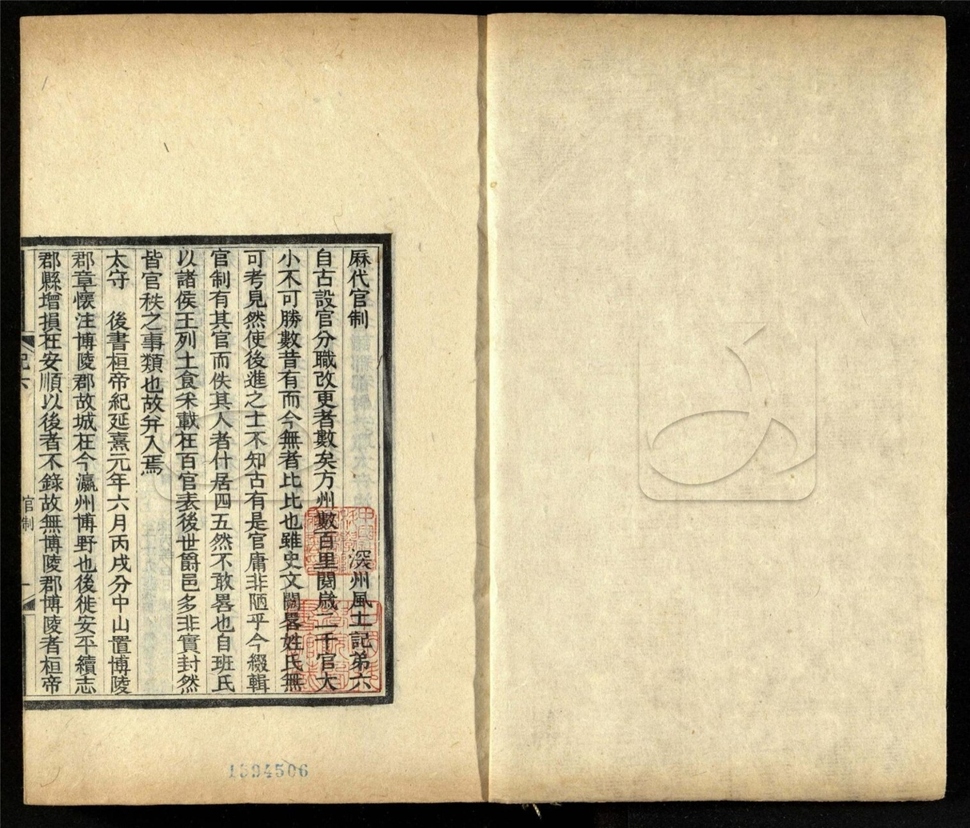 厤代官制　深州風土記弟六
自古設官分職改更者數矣方州數百里閱歲二千官大
小不可勝數昔有而今無者比比也雖史文闊畧姓氏無
可考見然使後進之士不知古有是官庸非陋乎今綴輯
官制有其官而佚其人者什居四五然不敢畧也自班氏
以諸侯王列土食采載在百官表後世爵邑多非實封然
皆官秩之事類也故幷入焉
太守　後書桓帝紀延熹元年六月丙戌分中山置博陵
郡章懷注博陵郡故城在今瀛州博野也後徙安平續志
郡縣增損在安順以後者不錄故無博陵郡博陵者桓帝
官制
一
1594506